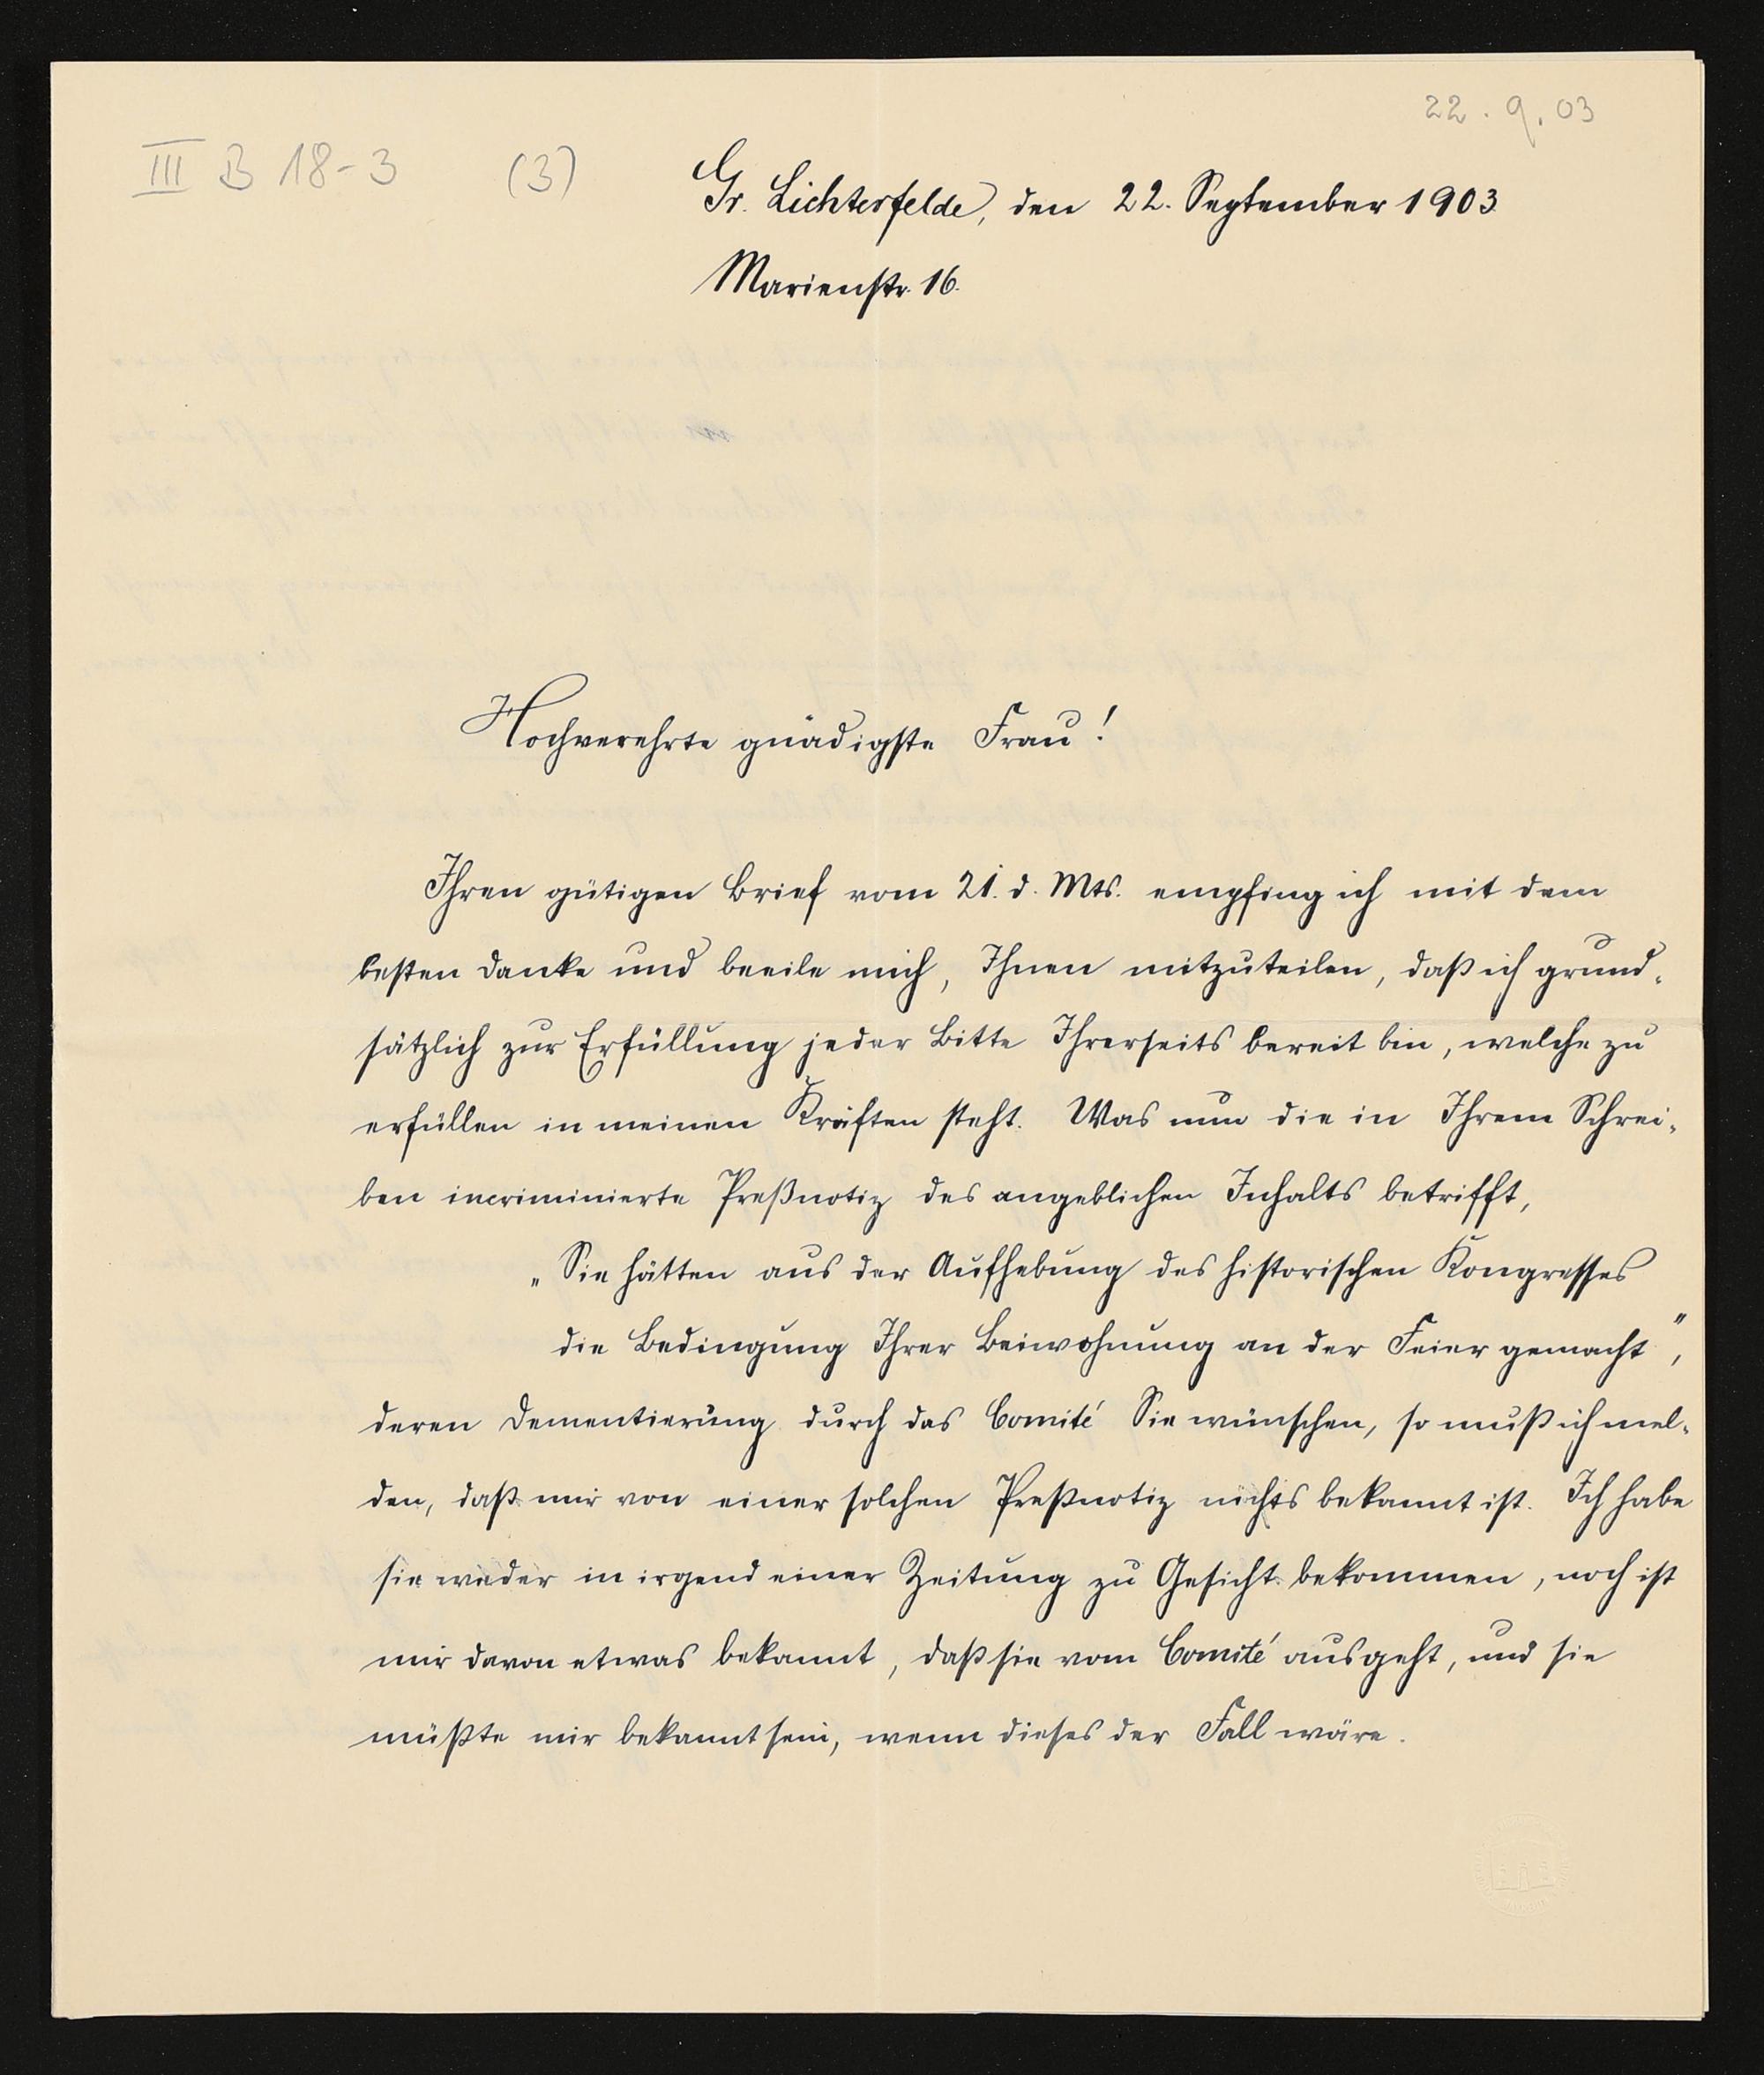 22. 9. 03
III B 18-3 (3)
Gr. Lichterfelde, den 22. September 1903.
Marienstr. 16.
Hochverehrte gnädigste Frau!
Ihren gütigen Brief vom 21. d. Mts. empfing ich mit dem
besten Danke und beeile mich, Ihnen mitzuteilen, daß ich grund-
sätzlich zur Erfüllung jeder Bitte Ihrerseits bereit bin, welche zu
erfüllen in meinen Kräften steht. Was nun die in Ihrem Schrei-
ben incriminierte Preßnotiz des angeblichen Inhalts betrifft,
„Sie hätten aus der Aufhebung des historischen Kongresses
die Bedingung Ihrer Beiwohnung an der Feier gemacht",
deren Dementierung durch das Comité Sie wünschen, so muß ich mel-
den, daß mir von einer solchen Preßnotiz nichts bekannt ist. Ich habe
sie weder in irgend einer Zeitung zu Gesicht bekommen, noch ist
mir davon etwas bekannt, daß sie vom Comité ausgeht, und sie
müßte mir bekannt sein, wenn dieses der Fall wäre.